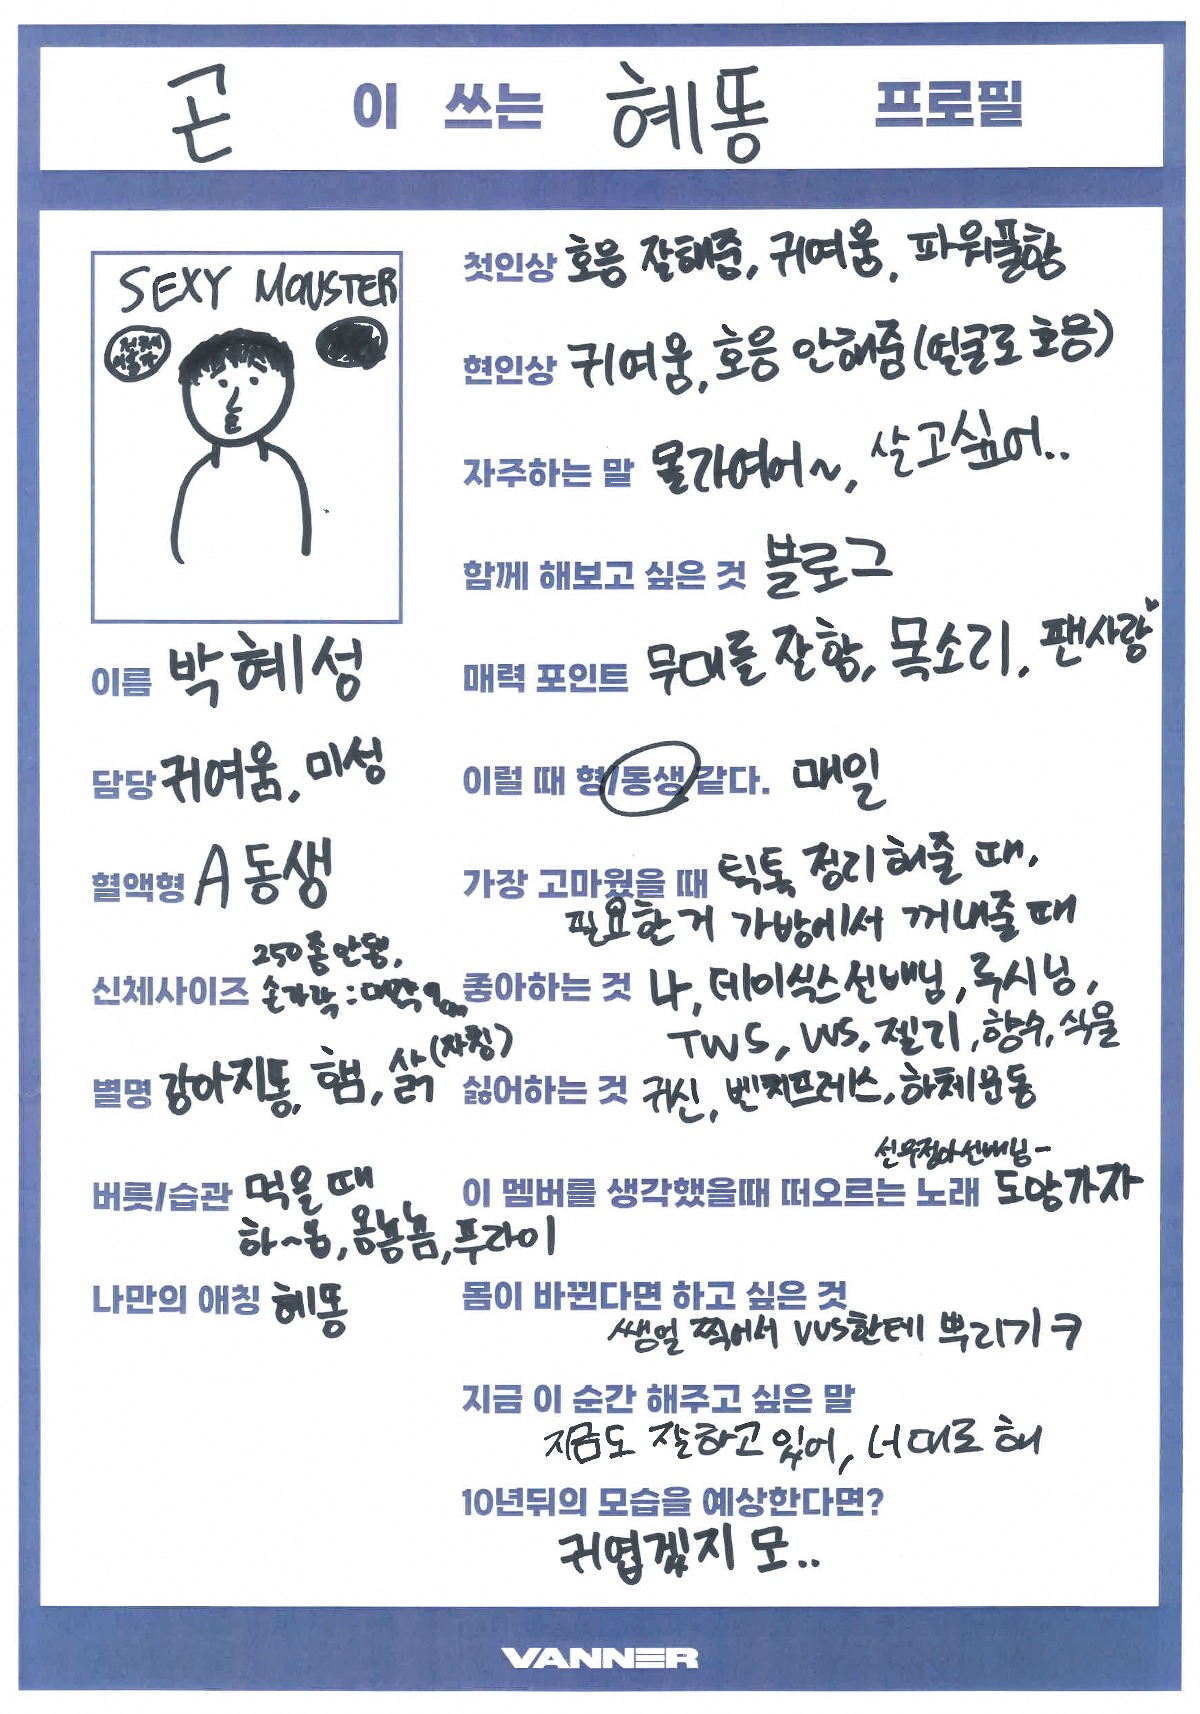 곤 이 쓰는 혜똥 프로필
SEXY MONSTER
이름 박혜성
담당 귀여움, 미성
혈액형 A 동생
신체사이즈 250 좀 안됨,
손가락 :
별명 강아지똥, 햄, 삵(자칭)
버릇/습관 먹을 때
하~봅, 옹뇸뇸, 푸라이
나만의 애칭 혜똥
첫인상 호응 잘해줌, 귀여움, 파워풀함
현인상 귀여움, 호응 안해줌(얼굴로 호응)
자주하는 말 몰라여어~, 살고싶어..
함께 해보고 싶은 것 블로그
매력 포인트 무대를 잘함, 목소리, 팬사랑
이럴 때 형/동생 같다. 매일
가장 고마웠을 때 틱톡 정리 해줄 때,
필요한거 가방에서 꺼내줄 때
좋아하는 것 나, 데이식스선배님, 루시님,
TWS, VVS, 젤리, 향수, 식물
싫어하는 것 귀신, 벤치프레스, 하체운동
선우정아선배님-
이 멤버를 생각했을때 떠오르는 노래 도망가자
몸이 바뀐다면 하고 싶은 것
쌩얼 찍어서 VVS한테 뿌리기 ㅋ
지금 이 순간 해주고 싶은 말
지금도 잘하고 있어, 너대로 해
10년뒤의 모습을 예상한다면?
귀엽겠지 모..
VANNER